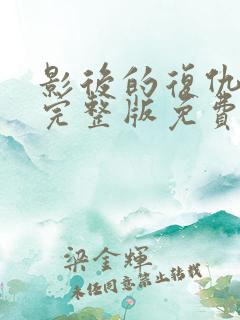 影後的復仇
完整版免費
梁金輝
未經同意禁止轉載